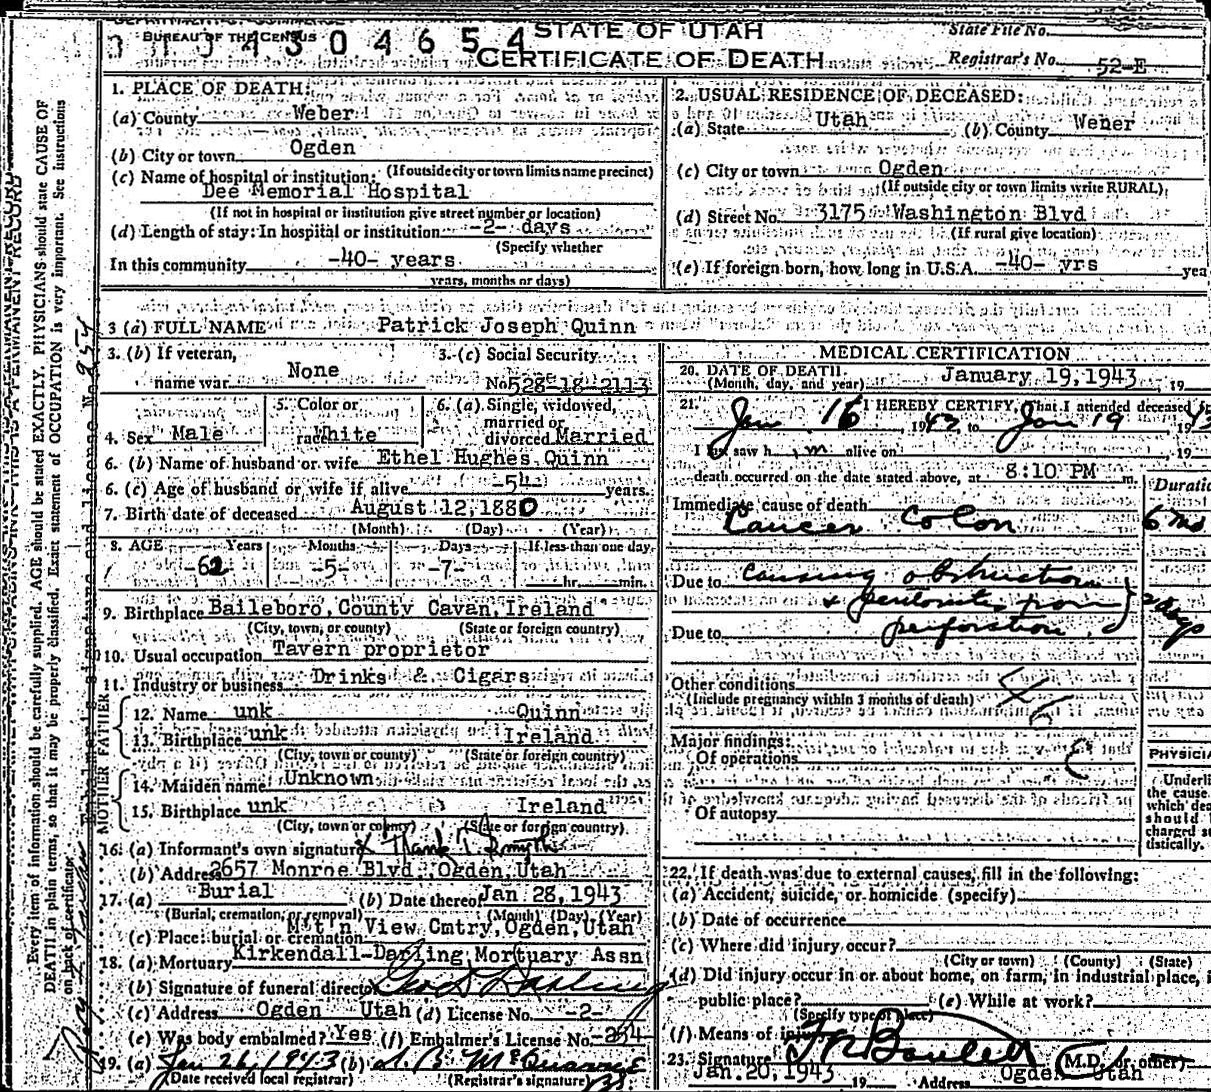 BUREAU OF THE CENSUS
04654
STATE OF UTAH
CERTIFICATE OF DEATH
State File No.
Registrar's No. 52-E
1. PLACE OF DEATH:
(a) County Weber
(b) City or town Ogden
(If outside city or town limits name precinct)
(c) Name of hospital or institution:
Dee Memorial Hospital
(If not in hospital or institution give street number or location)
(d) Length of stay: In hospital or institution -2- days
(Specify whether
In this community -40- years
years, months or days)
2. USUAL RESIDENCE OF DECEASED:
(a) State Utah (b) County Weber
(c) City or town Ogden
(If outside city or town limits write RURAL)
(d) Street No. 3175 Washington Blvd
(If rural give location)
(e) If foreign born, how long in U.S.A. -40- yrs yea
3 (a) FULL NAME Patrick Joseph Quinn
3. (b) If veteran, name war None
3. (c) Social Security No 528-18-2113
4. Sex Male
5. Color or race White
6. (a) Single, widowed, married or divorced Married
6. (b) Name of husband or wife Ethel Hughes Quinn
6. (c) Age of husband or wife if alive -54- years.
7. Birth date of deceased August 12, 1880
(Month) (Day) (Year)
8. AGE Years Months Days If less than one day
-62 -5- -7- hr. min.
9. Birthplace Baileboro, County Cavan, Ireland
(City, town, or county) (State or foreign country)
10. Usual occupation Tavern proprietor
11. Industry or business Drinks & Cigars
FATHER
12. Name unk Quinn
13. Birthplace unk Ireland
(City, town or county) (State or foreign country)
MOTHER
14. Maiden name Unknown
15. Birthplace unk Ireland
(City, town or county) (State or foreign country)
16. (a) Informant's own signature
(b) Address 2657 Monroe Blvd., Ogden, Utah
17. (a) Burial (b) Date thereof Jan 28, 1943
(Burial, cremation, or removal) (Month) (Day) (Year)
(c) Place: burial or cremation M't'n View Cmtry, Ogden, Utah
18. (a) Mortuary Kirkendall-Darling Mortuary Assn
(b) Signature of funeral director Geo D Darling
(c) Address Ogden Utah (d) License No. -2-
(e) Was body embalmed? Yes (f) Embalmer's License No. -254
19. (a) Jan 26, 1943 (b)
(Date received local registrar) (Registrar's signature)
MEDICAL CERTIFICATION
20. DATE OF DEATH January 19, 1943, 19
(Month, day, and year)
21. I HEREBY CERTIFY, That I attended deceased
Jan 16, 1943, to Jan 19, 19
I last saw him alive on , 19
death occurred on the date stated above, at 8:10 PM m.
Duratio
Immediate cause of death
Cancer Colon 6 mo
Due to causing obstruction
& peritonitis from 2 days
Due to perforation
Other conditions
(Include pregnancy within 3 months of death)
Major findings:
Of operations
Of autopsy
PHYSICIA
Underli
the cause
which dea
should
charged s
tistically.
22. If death was due to external causes, fill in the following:
(a) Accident, suicide, or homicide (specify)
(b) Date of occurrence
(c) Where did injury occur?
(City or town) (County) (State)
(d) Did injury occur in or about home, on farm, in industrial place, i
public place? (e) While at work?
(Specify type of place)
(f) Means of injury
23. Signature (M.D. or other)
Jan. 20, 1943 19 Address Ogden Utah
Every item of information should be carefully supplied. AGE should be stated EXACTLY. PHYSICIANS should state CAUSE OF
DEATH in plain terms, so that it may be properly classified. Exact statement of OCCUPATION is very important. See instructions
on back of certificate.